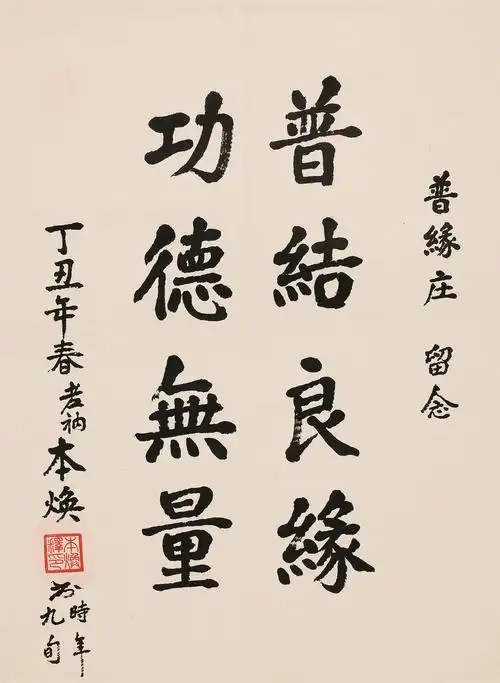 普緣庄 留念
普結良緣
功德無量
丁丑年春 老衲 本煥
時年
九旬